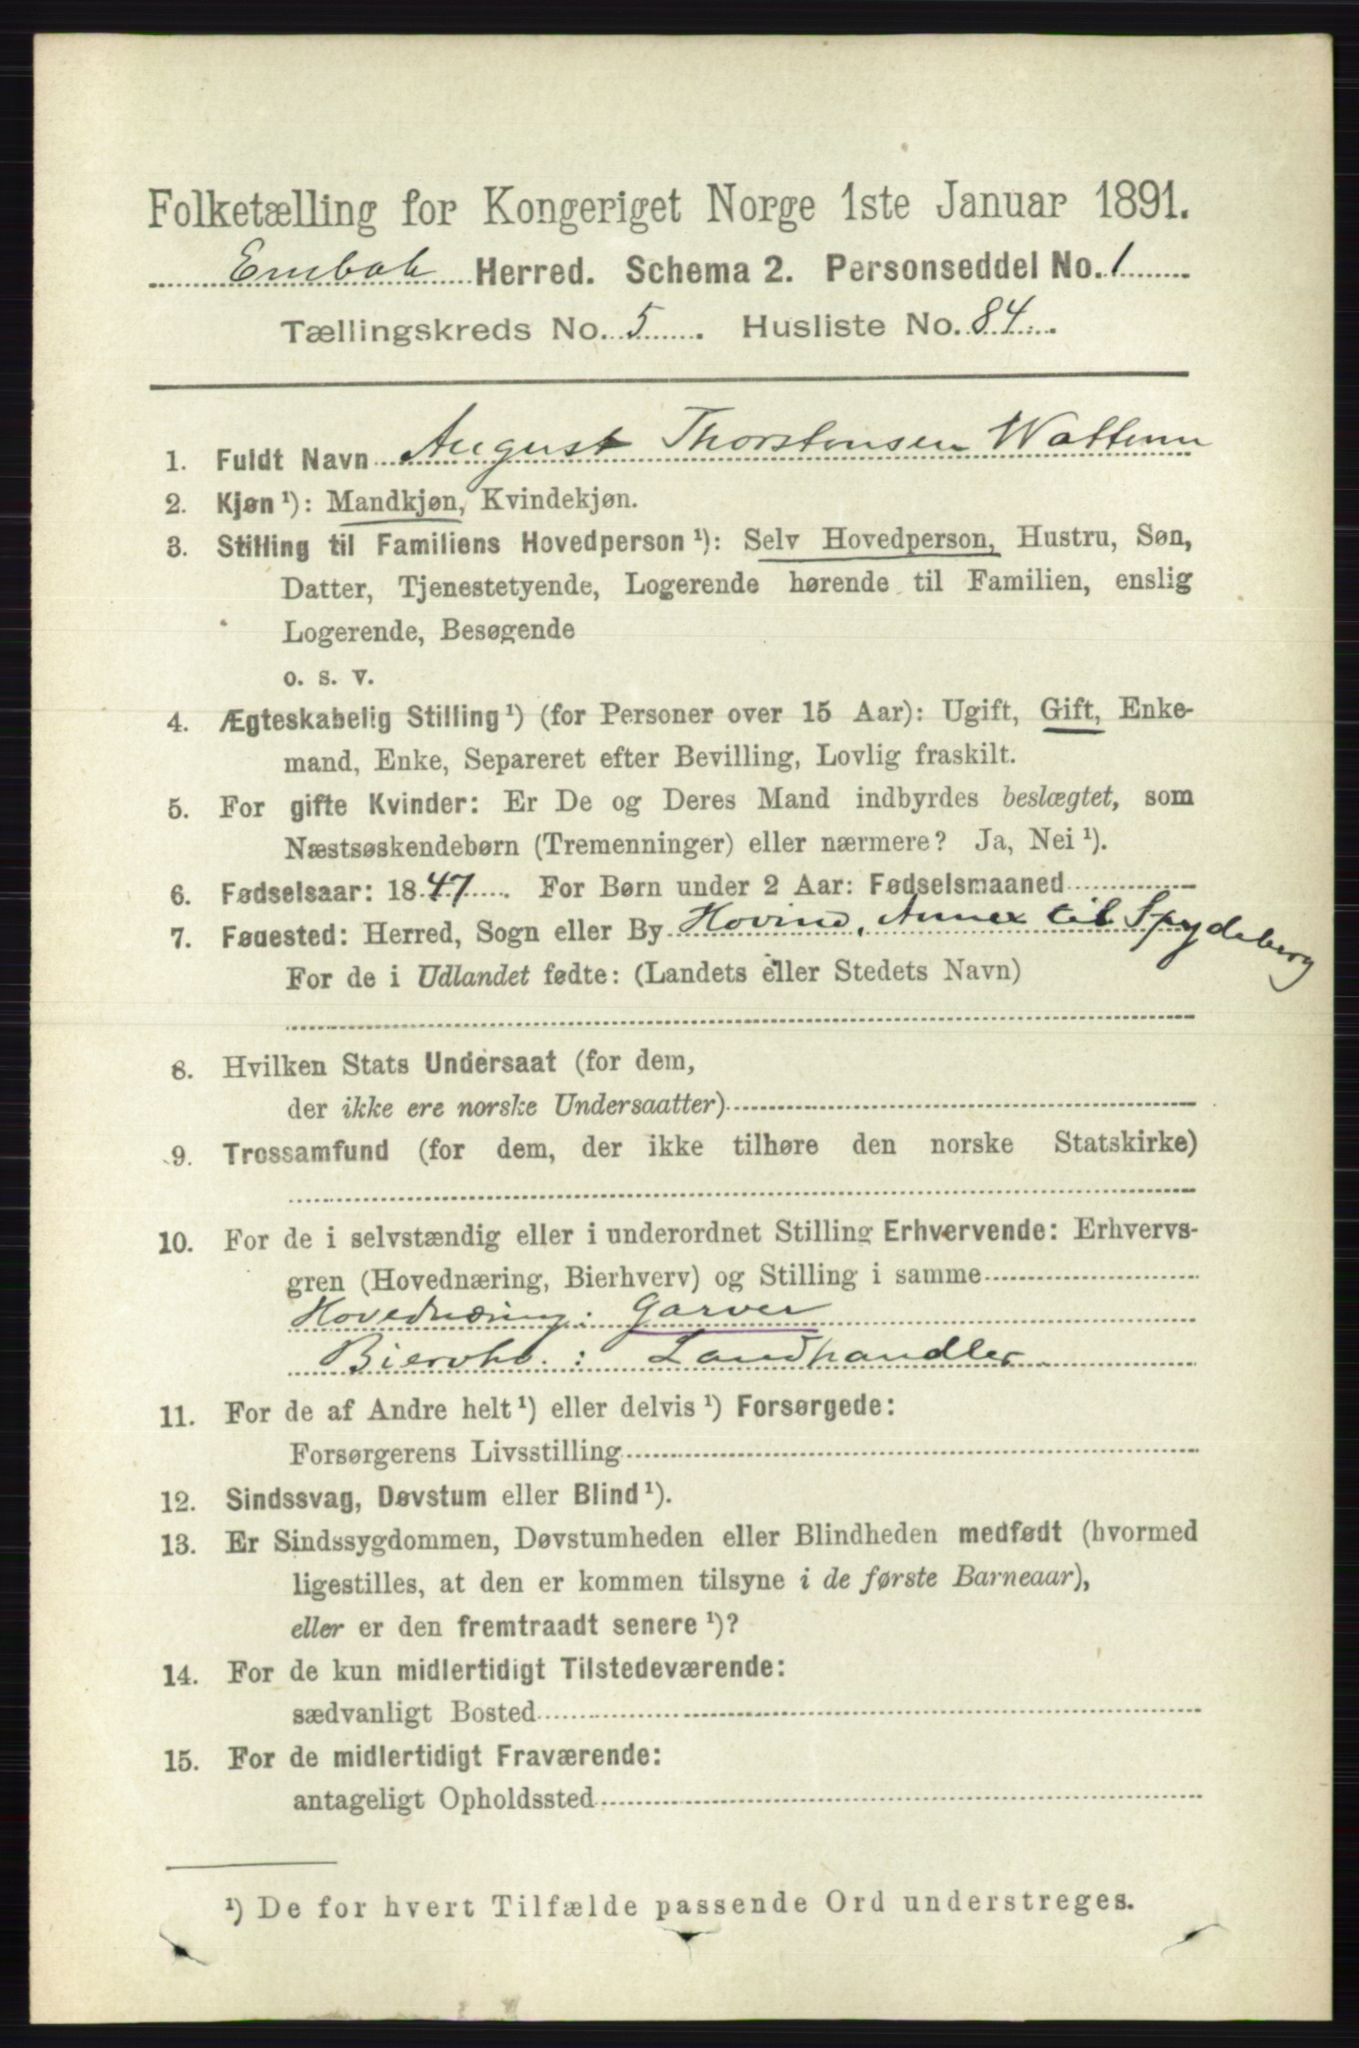 Folketælling for Kongeriget Norge 1ste Januar 1891.
Enebak Herred. Schema 2. Personseddel No. 1
Tællingskreds No. 5. Husliste No. 84.
1. Fuldt Navn August Thorstensen Wattum
2. Kjøn ¹): Mandkjøn, Kvindekjøn.
3. Stilling til Familiens Hovedperson ¹): Selv Hovedperson, Hustru, Søn,
Datter, Tjenestetyende, Logerende hørende til Familien, enslig
Logerende, Besøgende
o. s. v.
4. Ægteskabelig Stilling ¹) (for Personer over 15 Aar): Ugift, Gift, Enke-
mand, Enke, Separeret efter Bevilling, Lovlig fraskilt.
5. For gifte Kvinder: Er De og Deres Mand indbyrdes beslægtet, som
Næstsøskendebørn (Tremenninger) eller nærmere? Ja, Nei ¹).
6. Fødselsaar: 1847. For Børn under 2 Aar: Fødselsmaaned
7. Fødested: Herred, Sogn eller By Hovind, Annex til Spydeberg
For de i Udlandet fødte: (Landets eller Stedets Navn)
8. Hvilken Stats Undersaat (for dem,
der ikke ere norske Undersaatter)
9. Trossamfund (for dem, der ikke tilhøre den norske Statskirke)
10. For de i selvstændig eller i underordnet Stilling Erhvervende: Erhvervs-
gren (Hovednæring, Bierhverv) og Stilling i samme
Hovednæring: Garver
Biervhv.: Landhandler
11. For de af Andre helt ¹) eller delvis ¹) Forsørgede:
Forsørgerens Livsstilling
12. Sindssvag, Døvstum eller Blind ¹).
13. Er Sindssygdommen, Døvstumheden eller Blindheden medfødt (hvormed
ligestilles, at den er kommen tilsyne i de første Barneaar),
eller er den fremtraadt senere ¹)?
14. For de kun midlertidigt Tilstedeværende:
sædvanligt Bosted
15. For de midlertidigt Fraværende:
antageligt Opholdssted
¹) De for hvert Tilfælde passende Ord understreges.